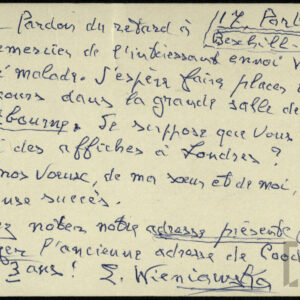 Pardon du retard à
17, Park
remercier de l'intéressant envoi
Bexhill
malade. J'espère faire places
cours dans la grande salle de
bourne. Je suppose que vous
des affiches à Londres?
nos vœux, de ma sœur et de moi,
succès.
notez notre adresse présente
l'ancienne adresse de Cood
3 ans! E. Wieniawska